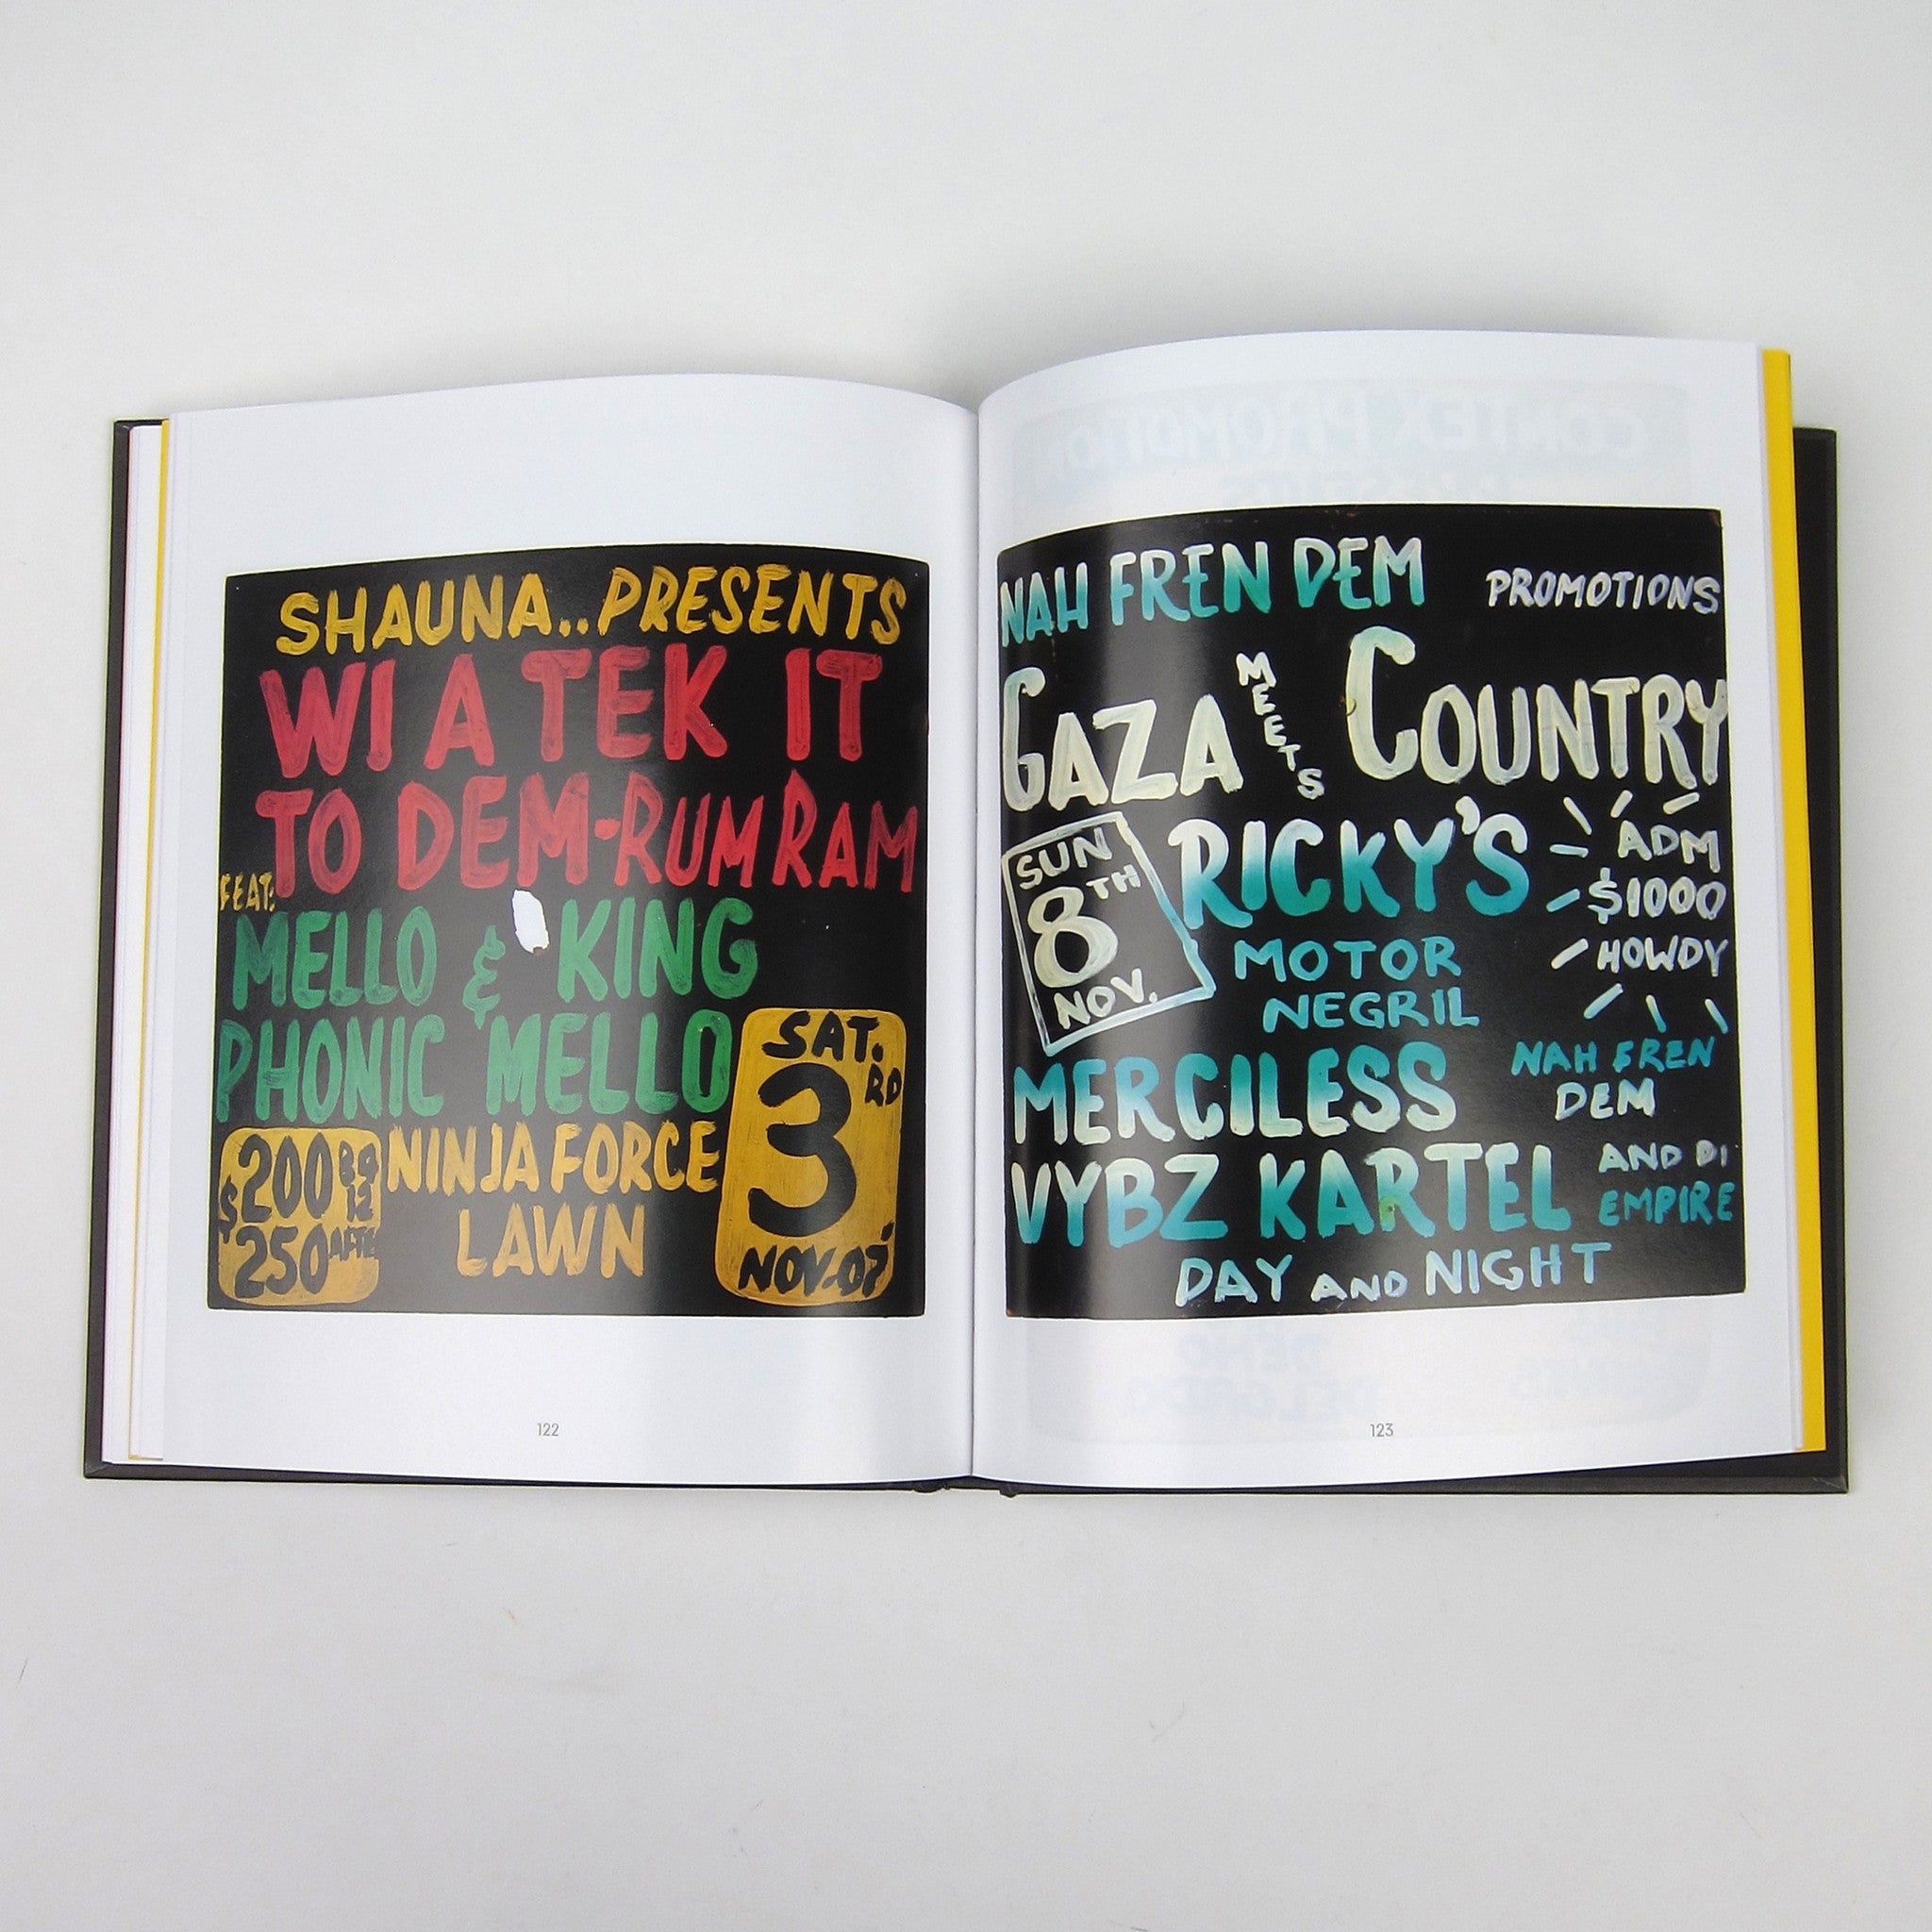 SHAUNA..PRESENTS
WI A TEK IT
TO DEM-RUM RAM
FEAT:
MELLO & KING
PHONIC MELLO
$200 B4 12
250 AFTER
NINJA FORCE
LAWN
SAT.
3RD
NOV-07'
122
NAH FREN DEM PROMOTIONS
GAZA MEETS COUNTRY
SUN
8TH
NOV.
RICKY'S
MOTOR
NEGRIL
ADM
$1000
HOWDY
MERCILESS
NAH FREN
DEM
VYBZ KARTEL
AND DI
EMPIRE
DAY AND NIGHT
123